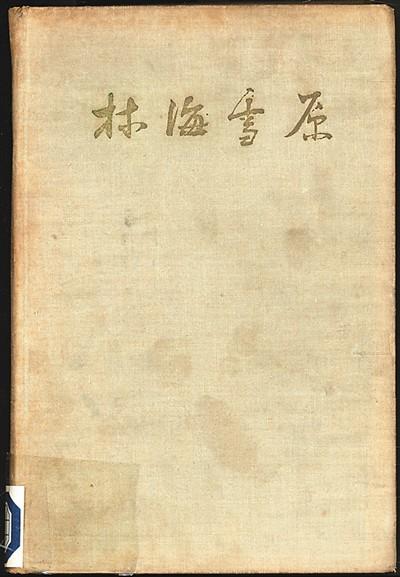 林海雪原